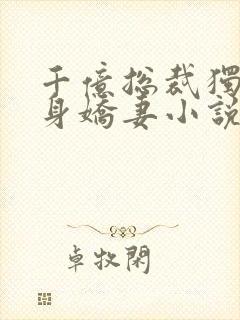 千億總裁獨
身嬌妻小說
卓牧閑